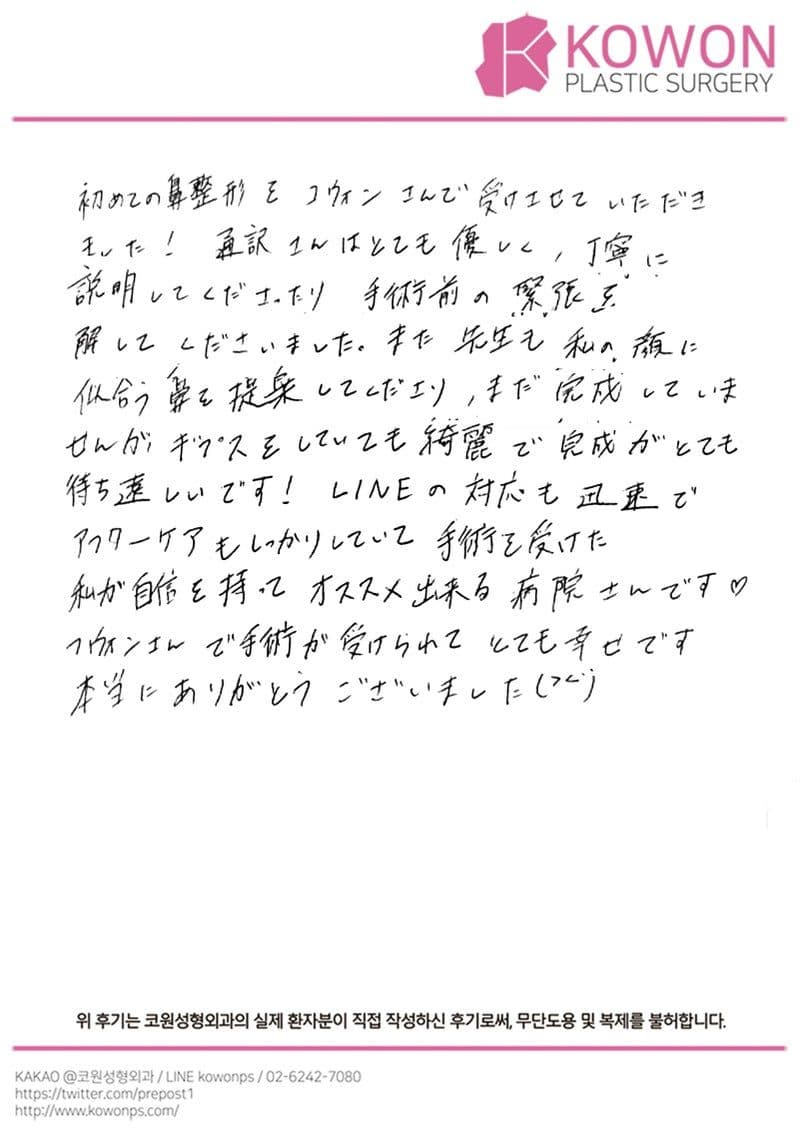 KOWON
PLASTIC SURGERY
初めての鼻整形を コウォン さんで 受けさせて いただき
ました！ 通訳さんはとても優しく、丁寧に
説明してくださったり 手術前の緊張を
解してくださいました。また先生も私の顔に
似合う鼻を提案してくださり、まだ完成していま
せんが、ギプスをしていても綺麗で完成がとても
待ち遠しいです！ LINEの対応も迅速で
アフターケアもしっかりしていて 手術を受けた
私が自信を持って オススメ出来る病院さんです♡
コウォンさんで手術が受けられて とても幸せです
本当にありがとうございました
위 후기는 코원성형외과의 실제 환자분이 직접 작성하신 후기로써, 무단도용 및 복제를 불허합니다.
KAKAO @코원성형외과 / LINE kowonps / 02-6242-7080
https://twitter.com/prepost1
http://www.kowonps.com/